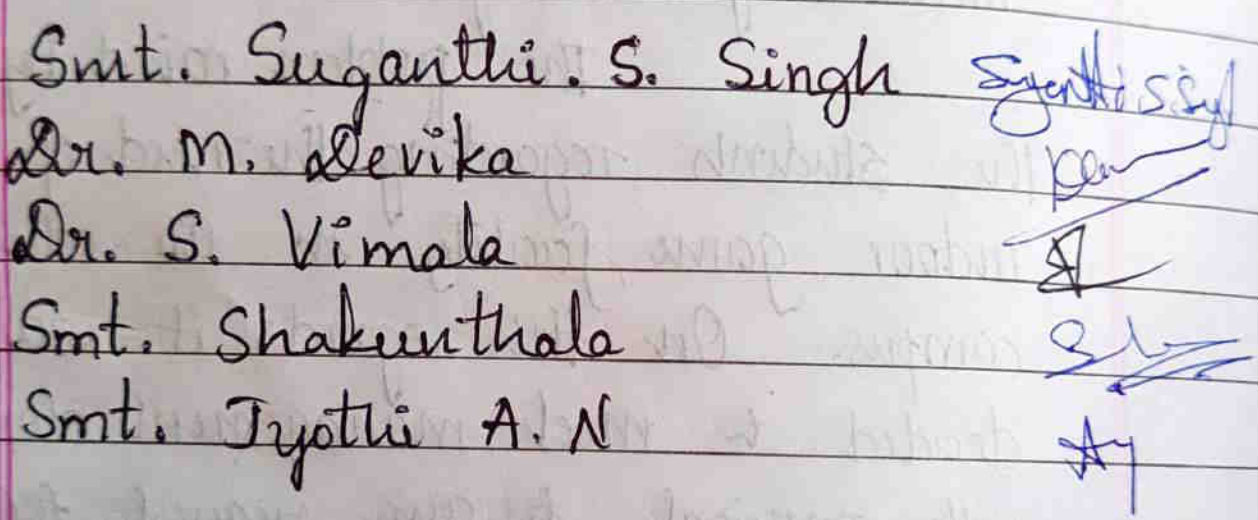 Smt. Suganthi. S. Singh
Dr. M. Devika
Dr. S. Vimala
Smt. Shakunthala
Smt. Jyothi A. N